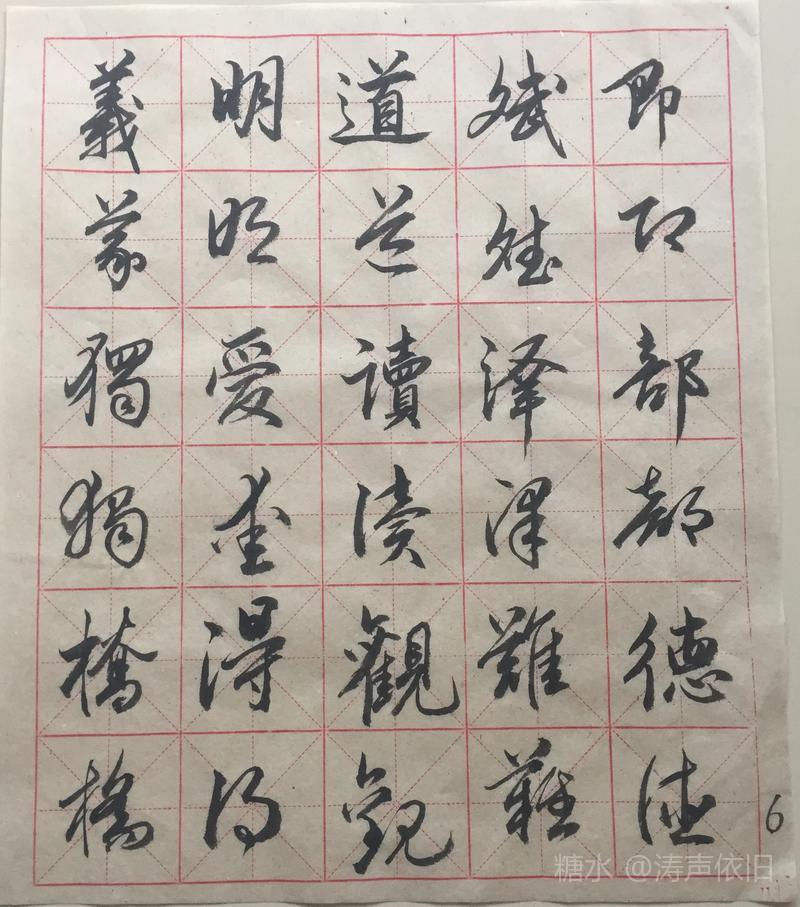 即即部部德德
斌斌澤澤難難
道道讀讀觀觀
明明愛愛得得
義義獨獨橋橋
6
糖水 @涛声依旧